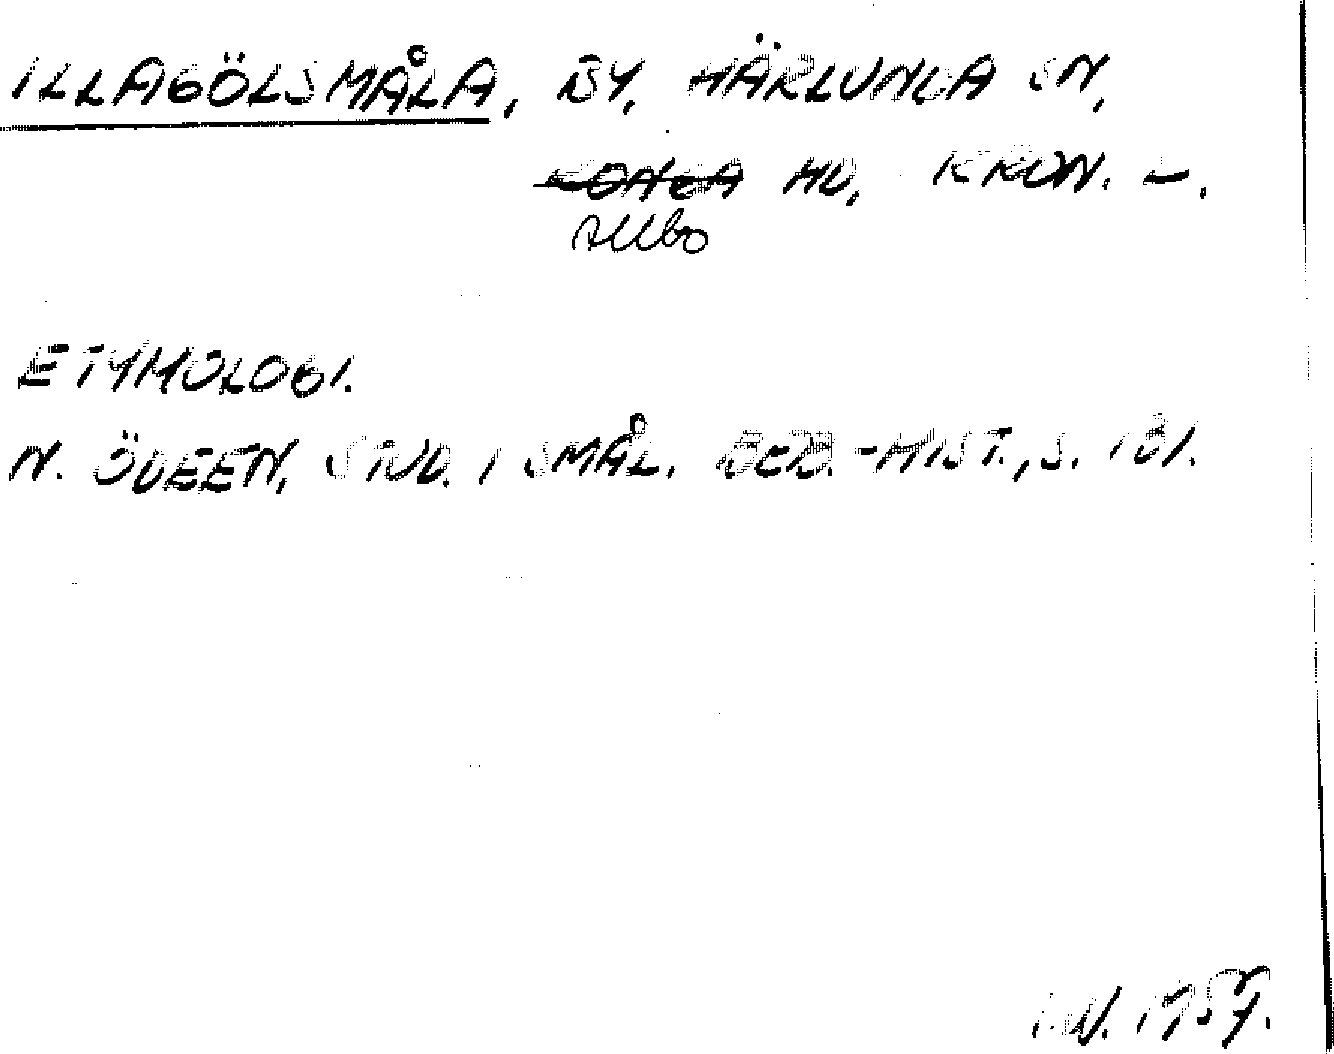 ILLAGÖLSMÅLA, BY, HÄRLUNDA SN,
KONGA HD, KRON. L.
Allbo
ETYMOLOGI.
N. ÖDEEN, STUD. I SMÅL. BEB.-HIST., S. 181.
1957.